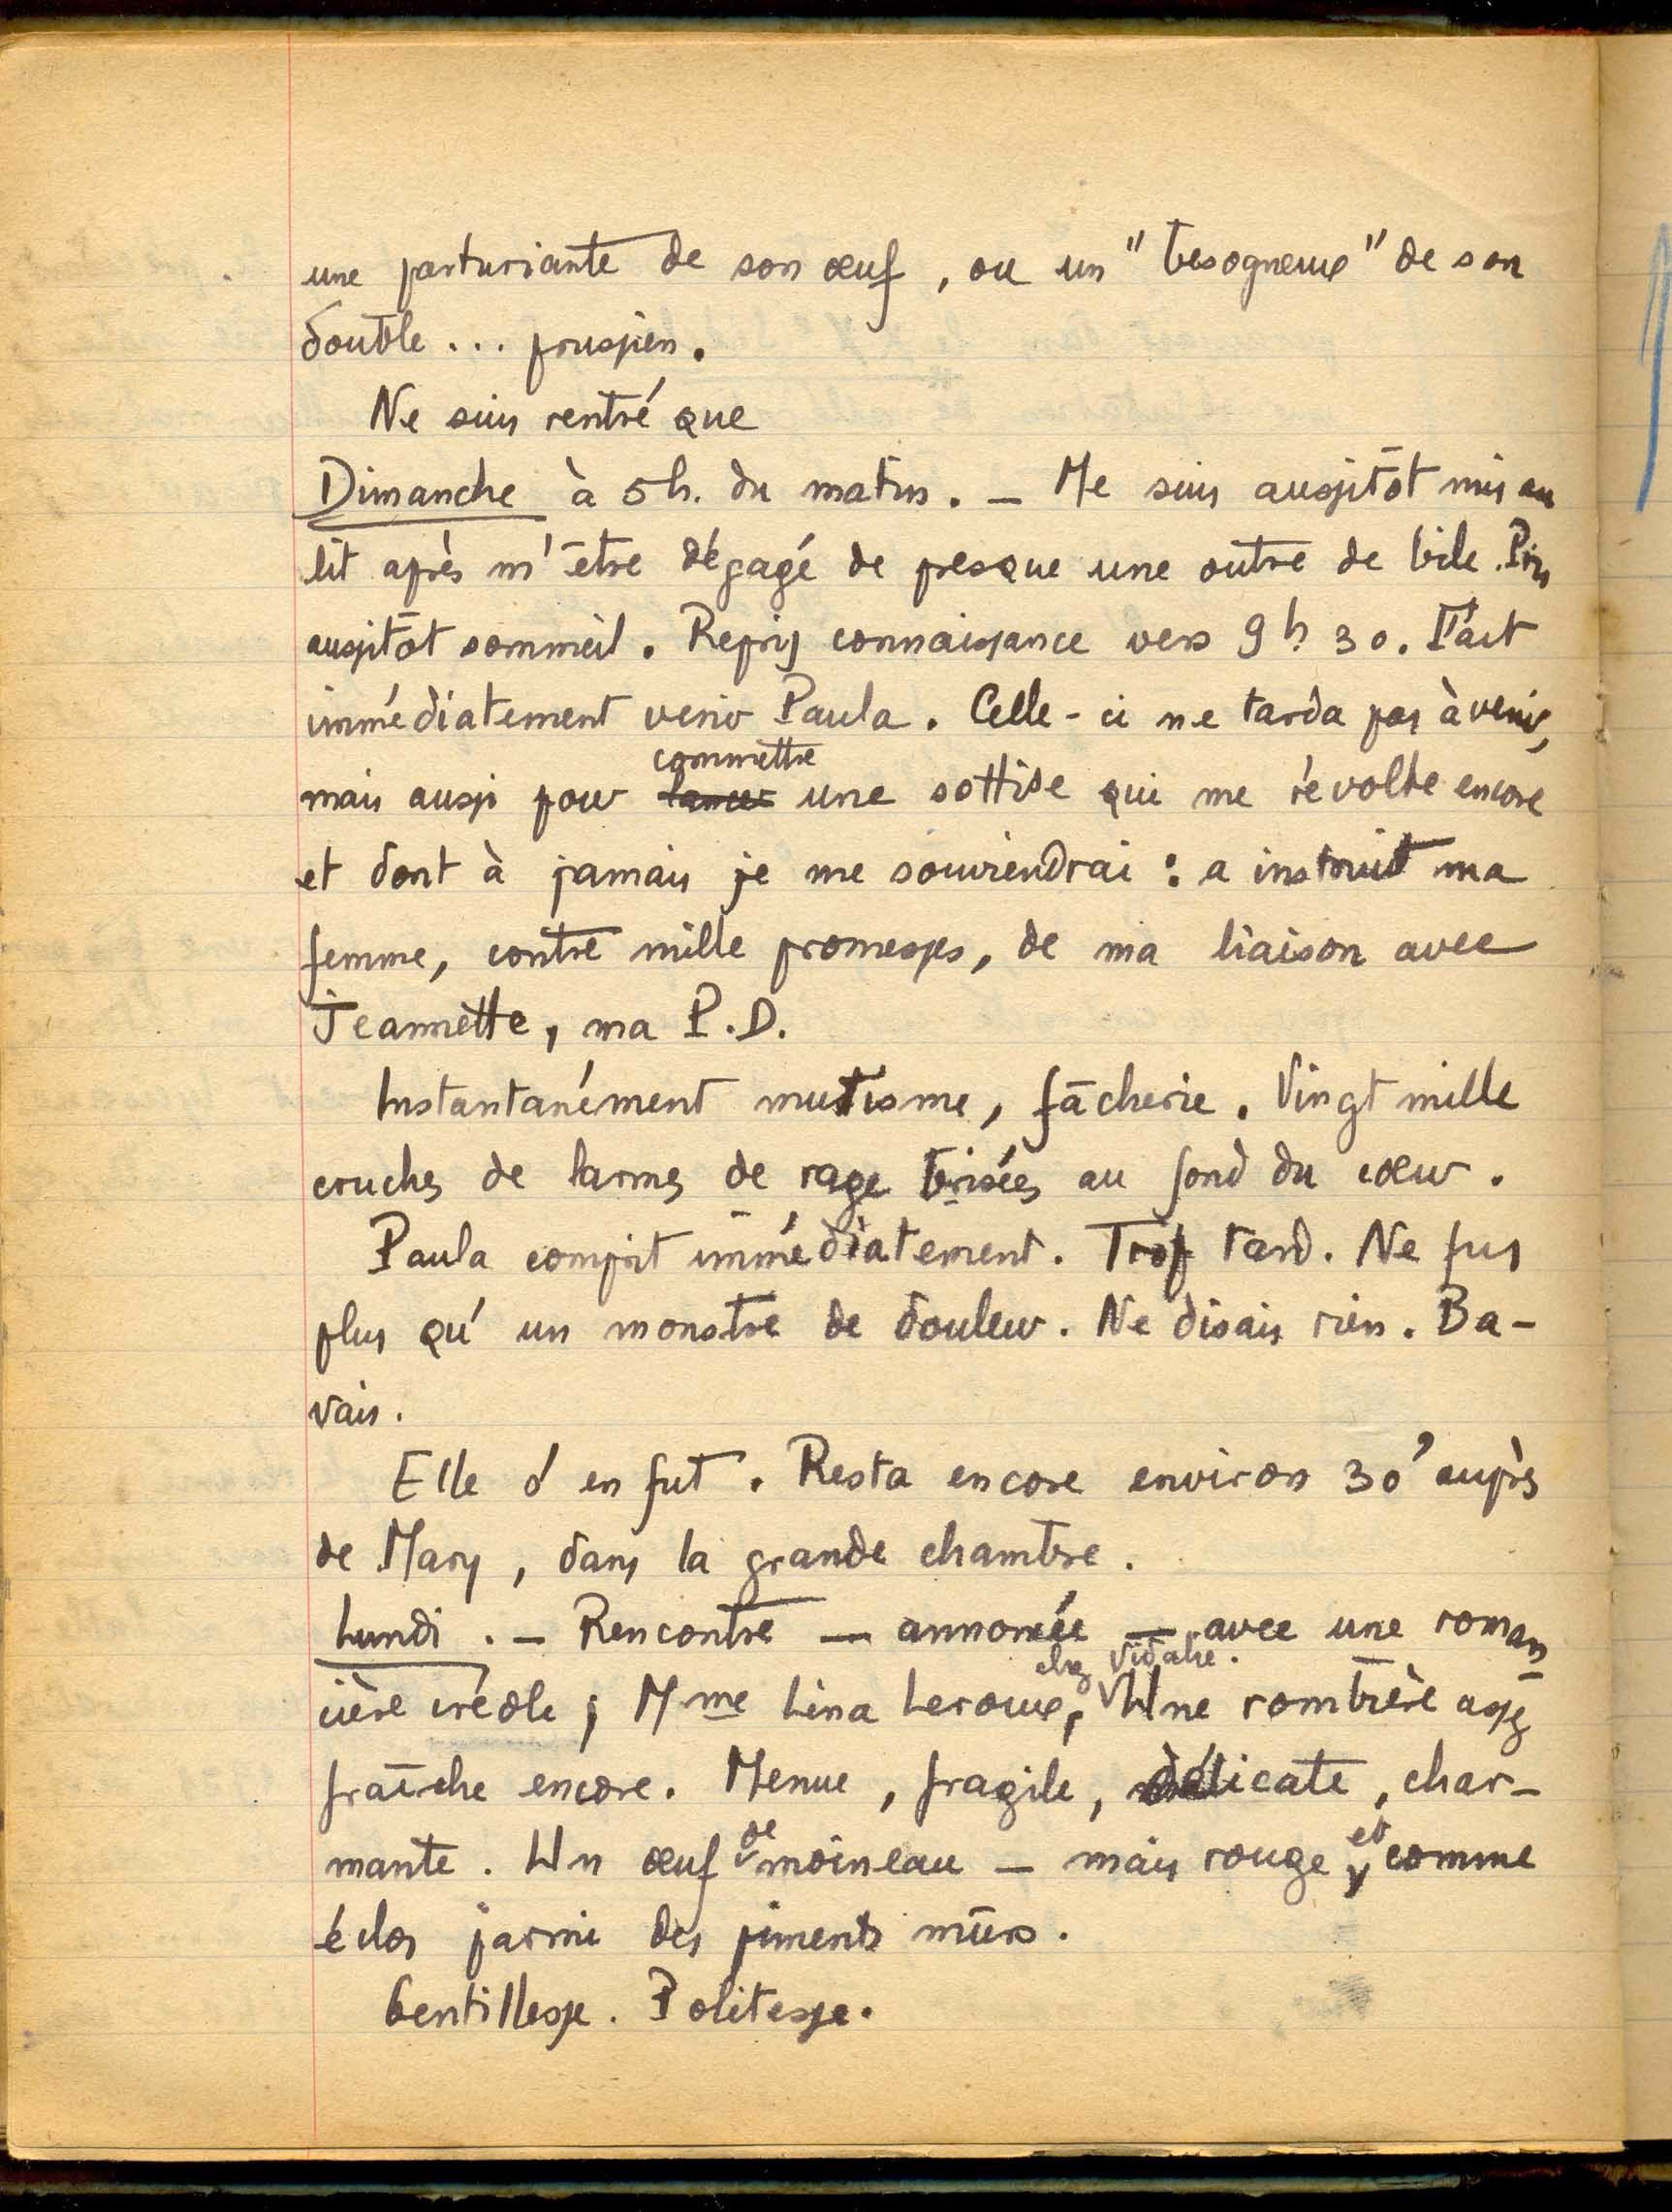 une parturiante de son œuf, ou un "besogneux" de son
double... prussien.
Ne suis rentré que
Dimanche à 5h. du matin. — Me suis aussitôt mis au
lit après m'être dégagé de presque une outre de bile. Pris
aussitôt sommeil. Repris connaissance vers 9h 30. Fait
immédiatement venir Paula. Celle-ci ne tarda pas à venir,
commettre
mais aussi pour lancer une sottise qui me révolte encore
et dont à jamais je me souviendrai : a instruit ma
femme, contre mille promesses, de ma liaison avec
Jeannette, ma P.D.
Instantanément mutisme, fâcherie. Vingt mille
cruches de larmes de rage brisées au fond du cœur.
Paula comprit immédiatement. Trop tard. Ne fus
plus qu'un monstre de douleur. Ne disais rien. Ba-
vais.
Elle s'en fut. Resta encore environ 30' auprès
de Mary, dans la grande chambre.
Lundi. — Rencontre — annoncée — avec une roman
chez Vidalie.
cière créole ; Mme Lina Leroux, Une rombière assez
fraîche encore. Menue, fragile, délicate, char-
mante. Un œuf de moineau — mais rouge et comme
éclos parmi des piments mûrs.
Gentillesse. Politesse.